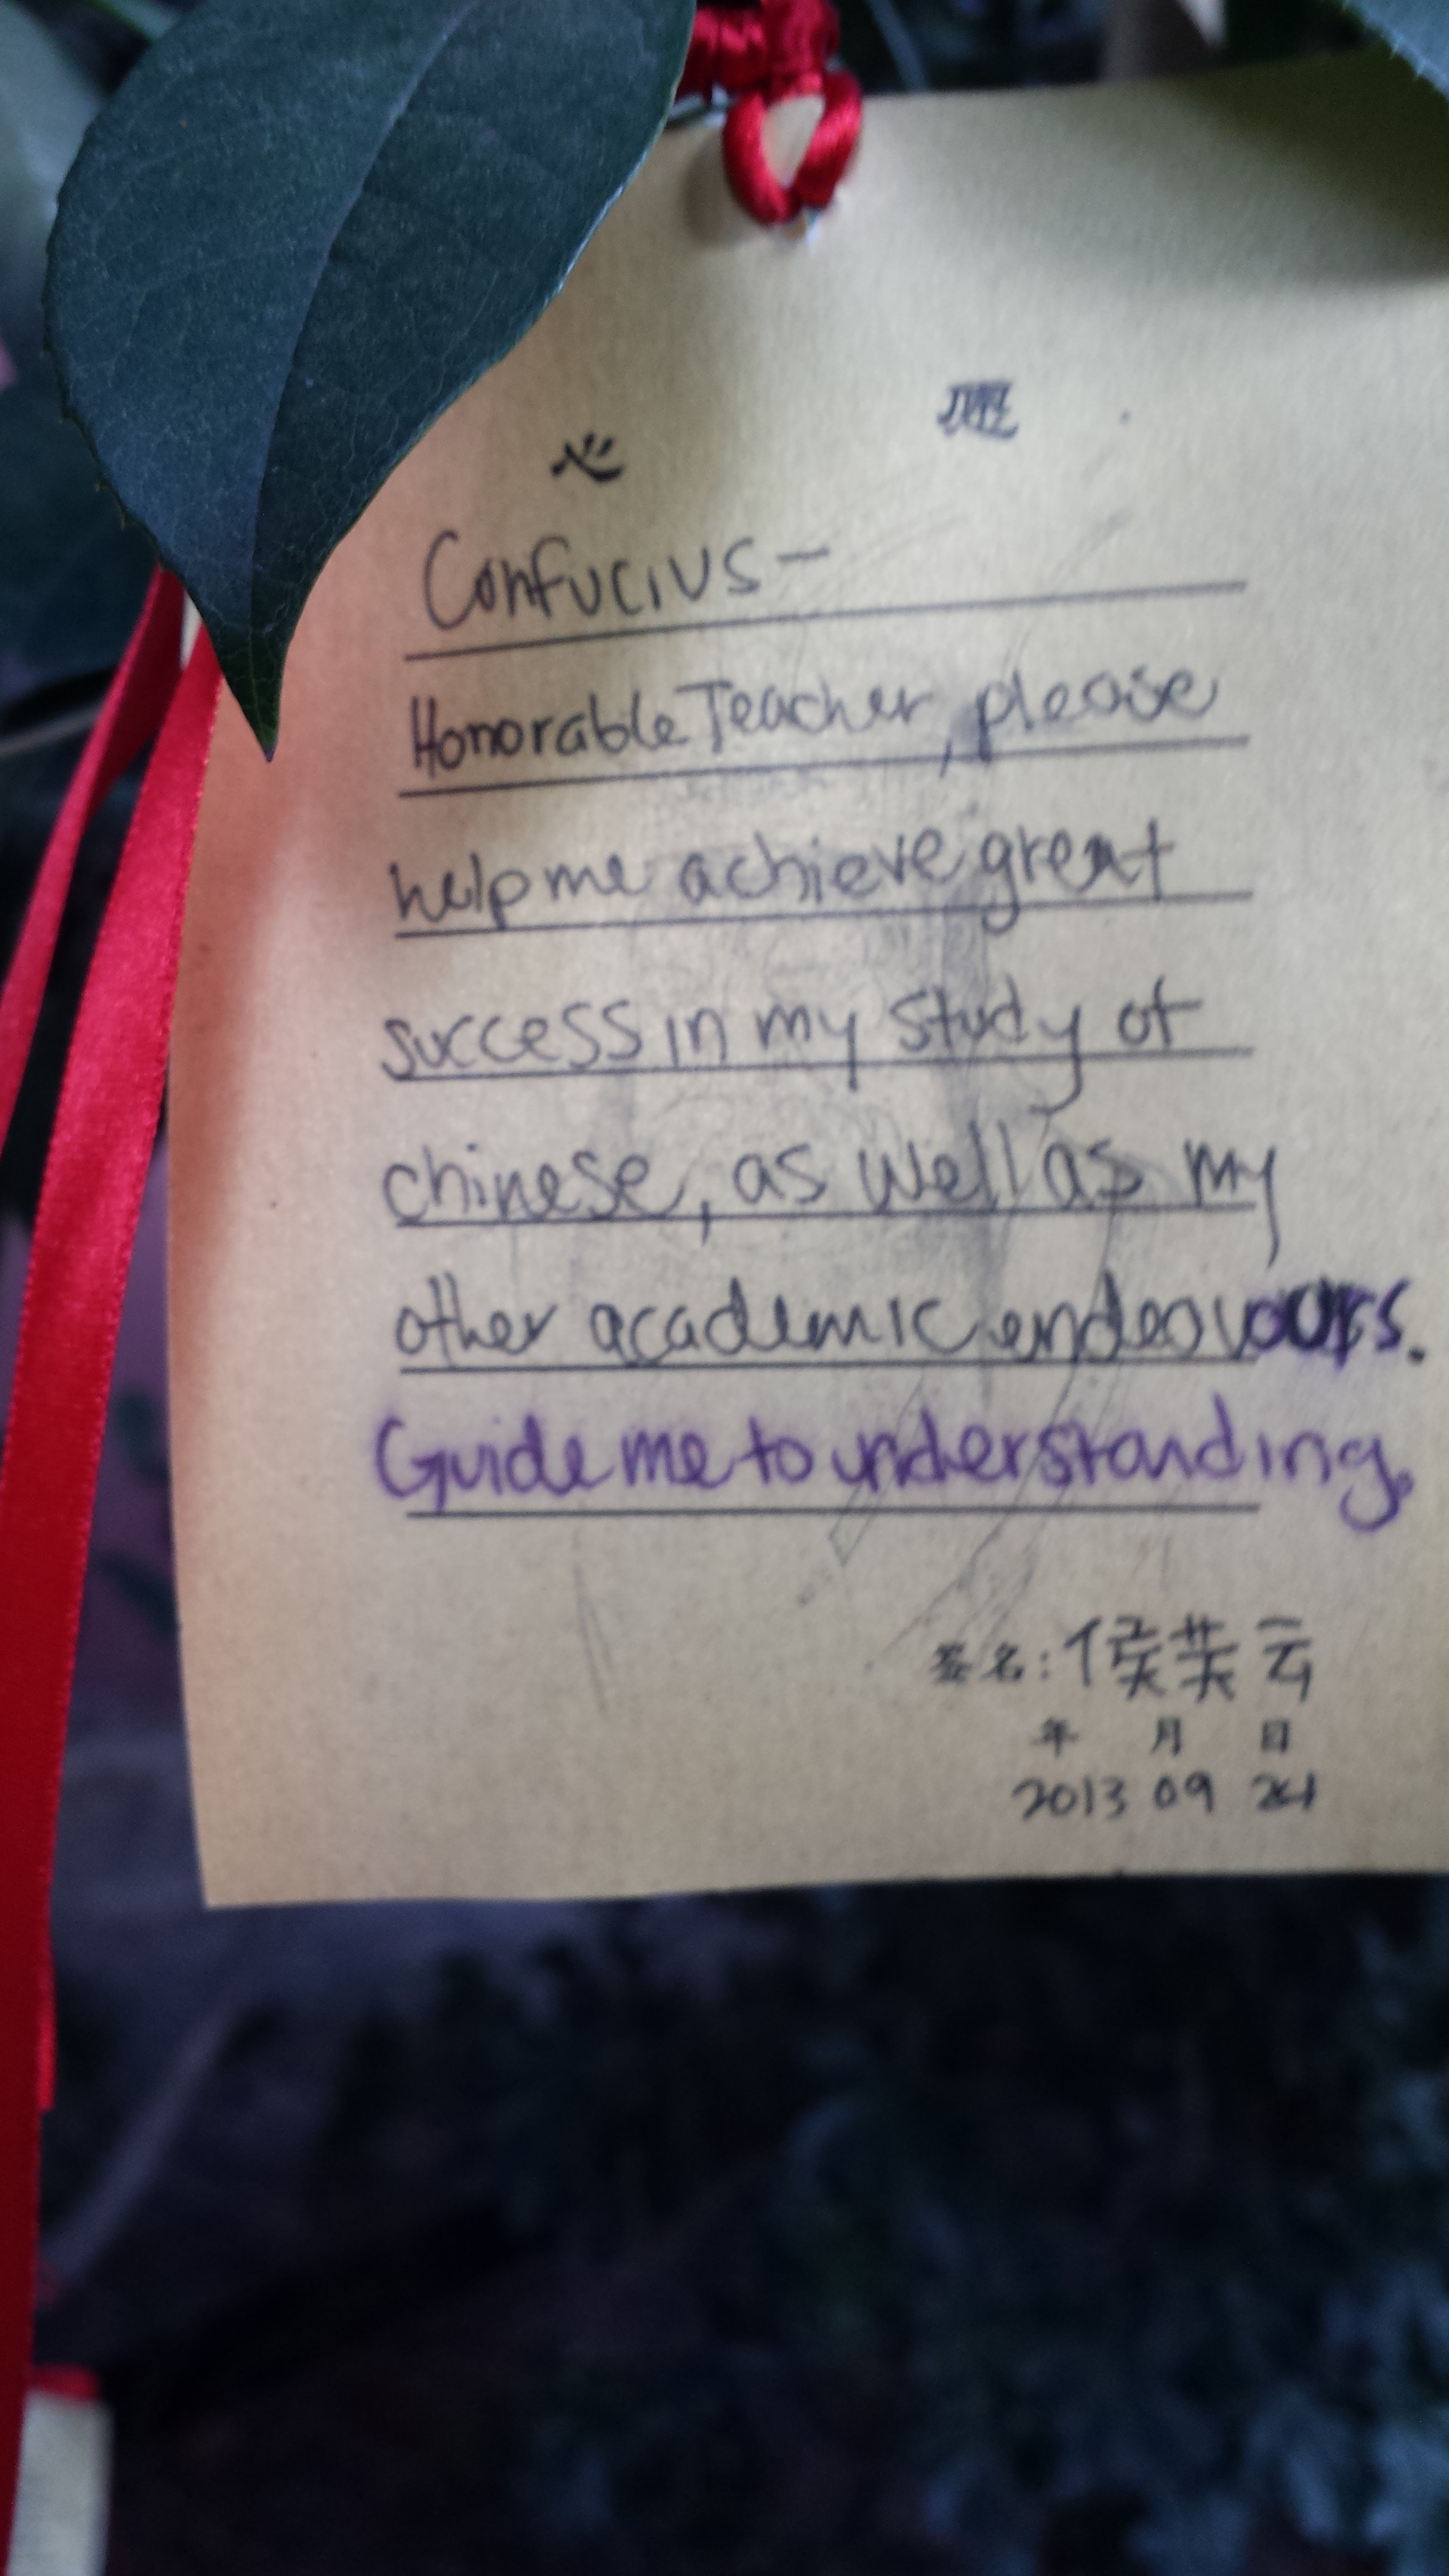 心 愿
Confucius –
Honorable Teacher, please
help me achieve great
success in my study of
chinese, as well as my
other academic endeavours.
Guide me to understanding.
签名: 侯芙云
年 月 日
2013 09 24